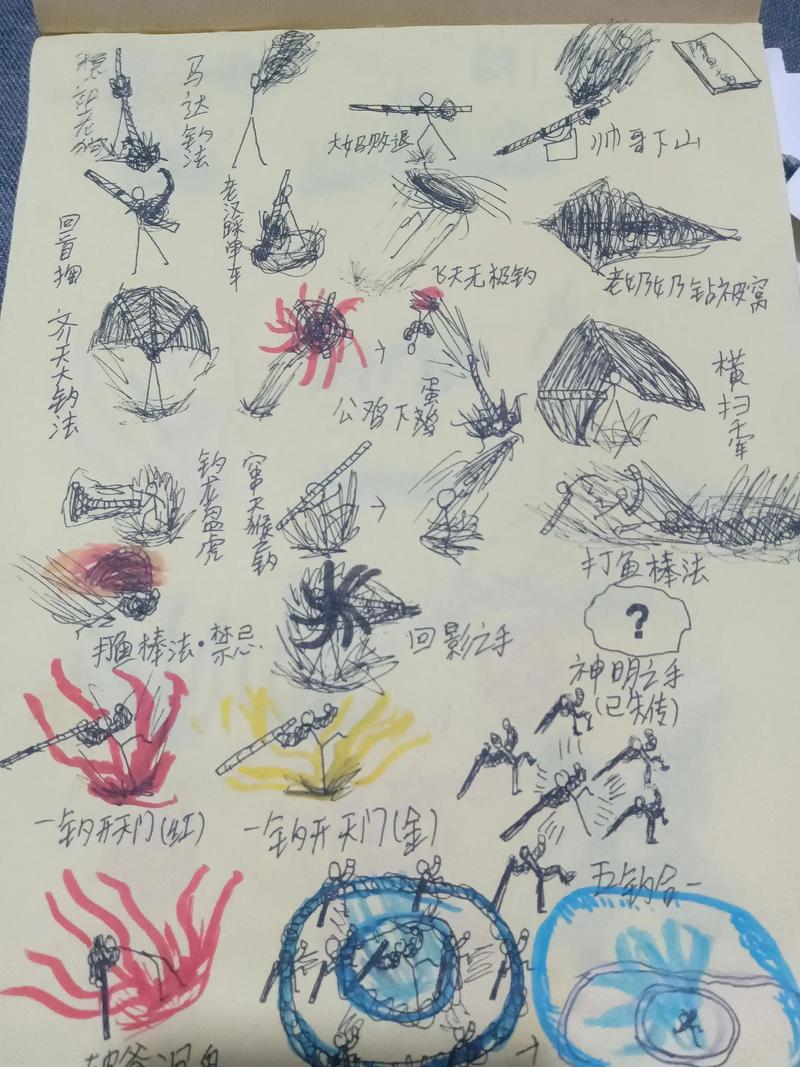 马达钓法
大妈败退
帅哥下山
回首掏
老汉踩单车
飞天无极钓
老奶奶钻被窝
齐天大钓法
公鸡下蛋
横扫千军
钓龙盘虎
窜天猴钓
打鱼棒法
打鱼棒法·禁忌
回影之手
?
神明之手
(已失传)
一钓开天门(红)
一钓开天门(金)
五钓合一